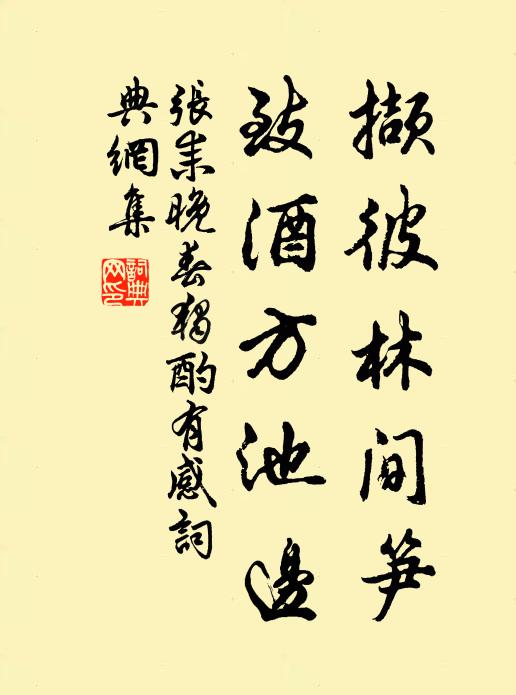 擷彼林間笋
致酒方池邊
張耒晚春獨酌有感詞
典網集
詞典
网印